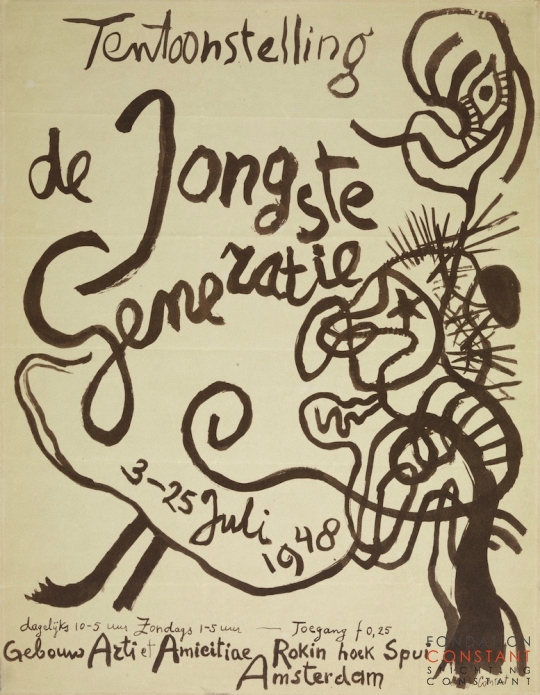 Tentoonstelling
de Jongste
Generatie
3-25 Juli
1948
dagelijks 10-5 uur Zondags 1-5 uur — Toegang f 0,25
Gebouw Arti et Amicitiae Rokin hoek Spui
Amsterdam
FONDATION
CONSTANT
STICHTING
CONSTANT